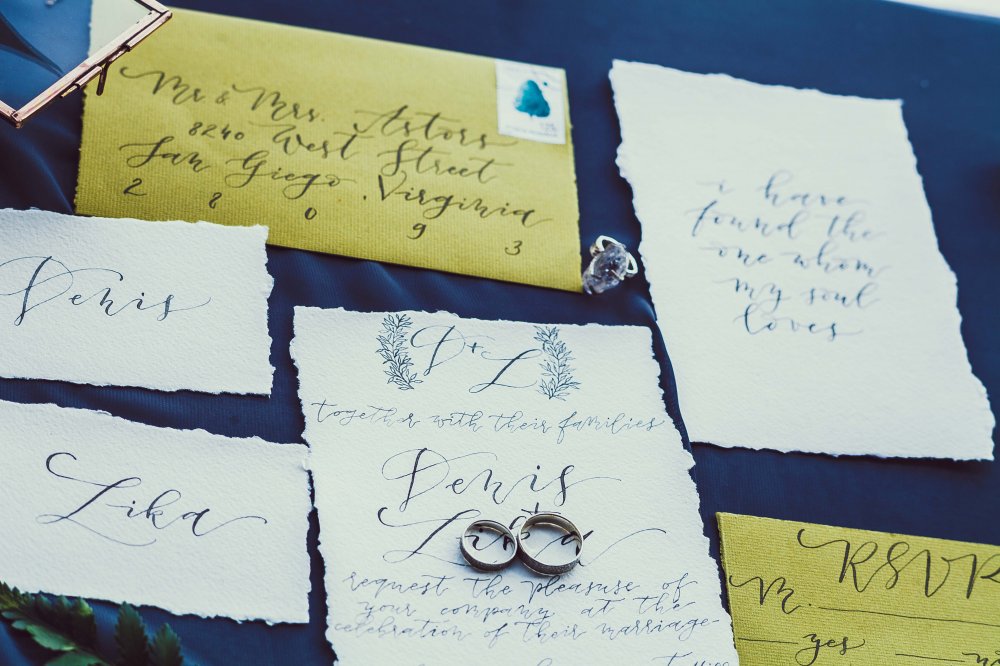 Mr & Mrs. Astors
8240 West Street
San Giego, Virginia
2 8 0 9 3
i have
found the
one whom
my soul
loves
Denis
Lika
D+L
together with their families
Denis
Lika
request the pleasure of
your company at the
celebration of their marriage
RSVP
M.
yes